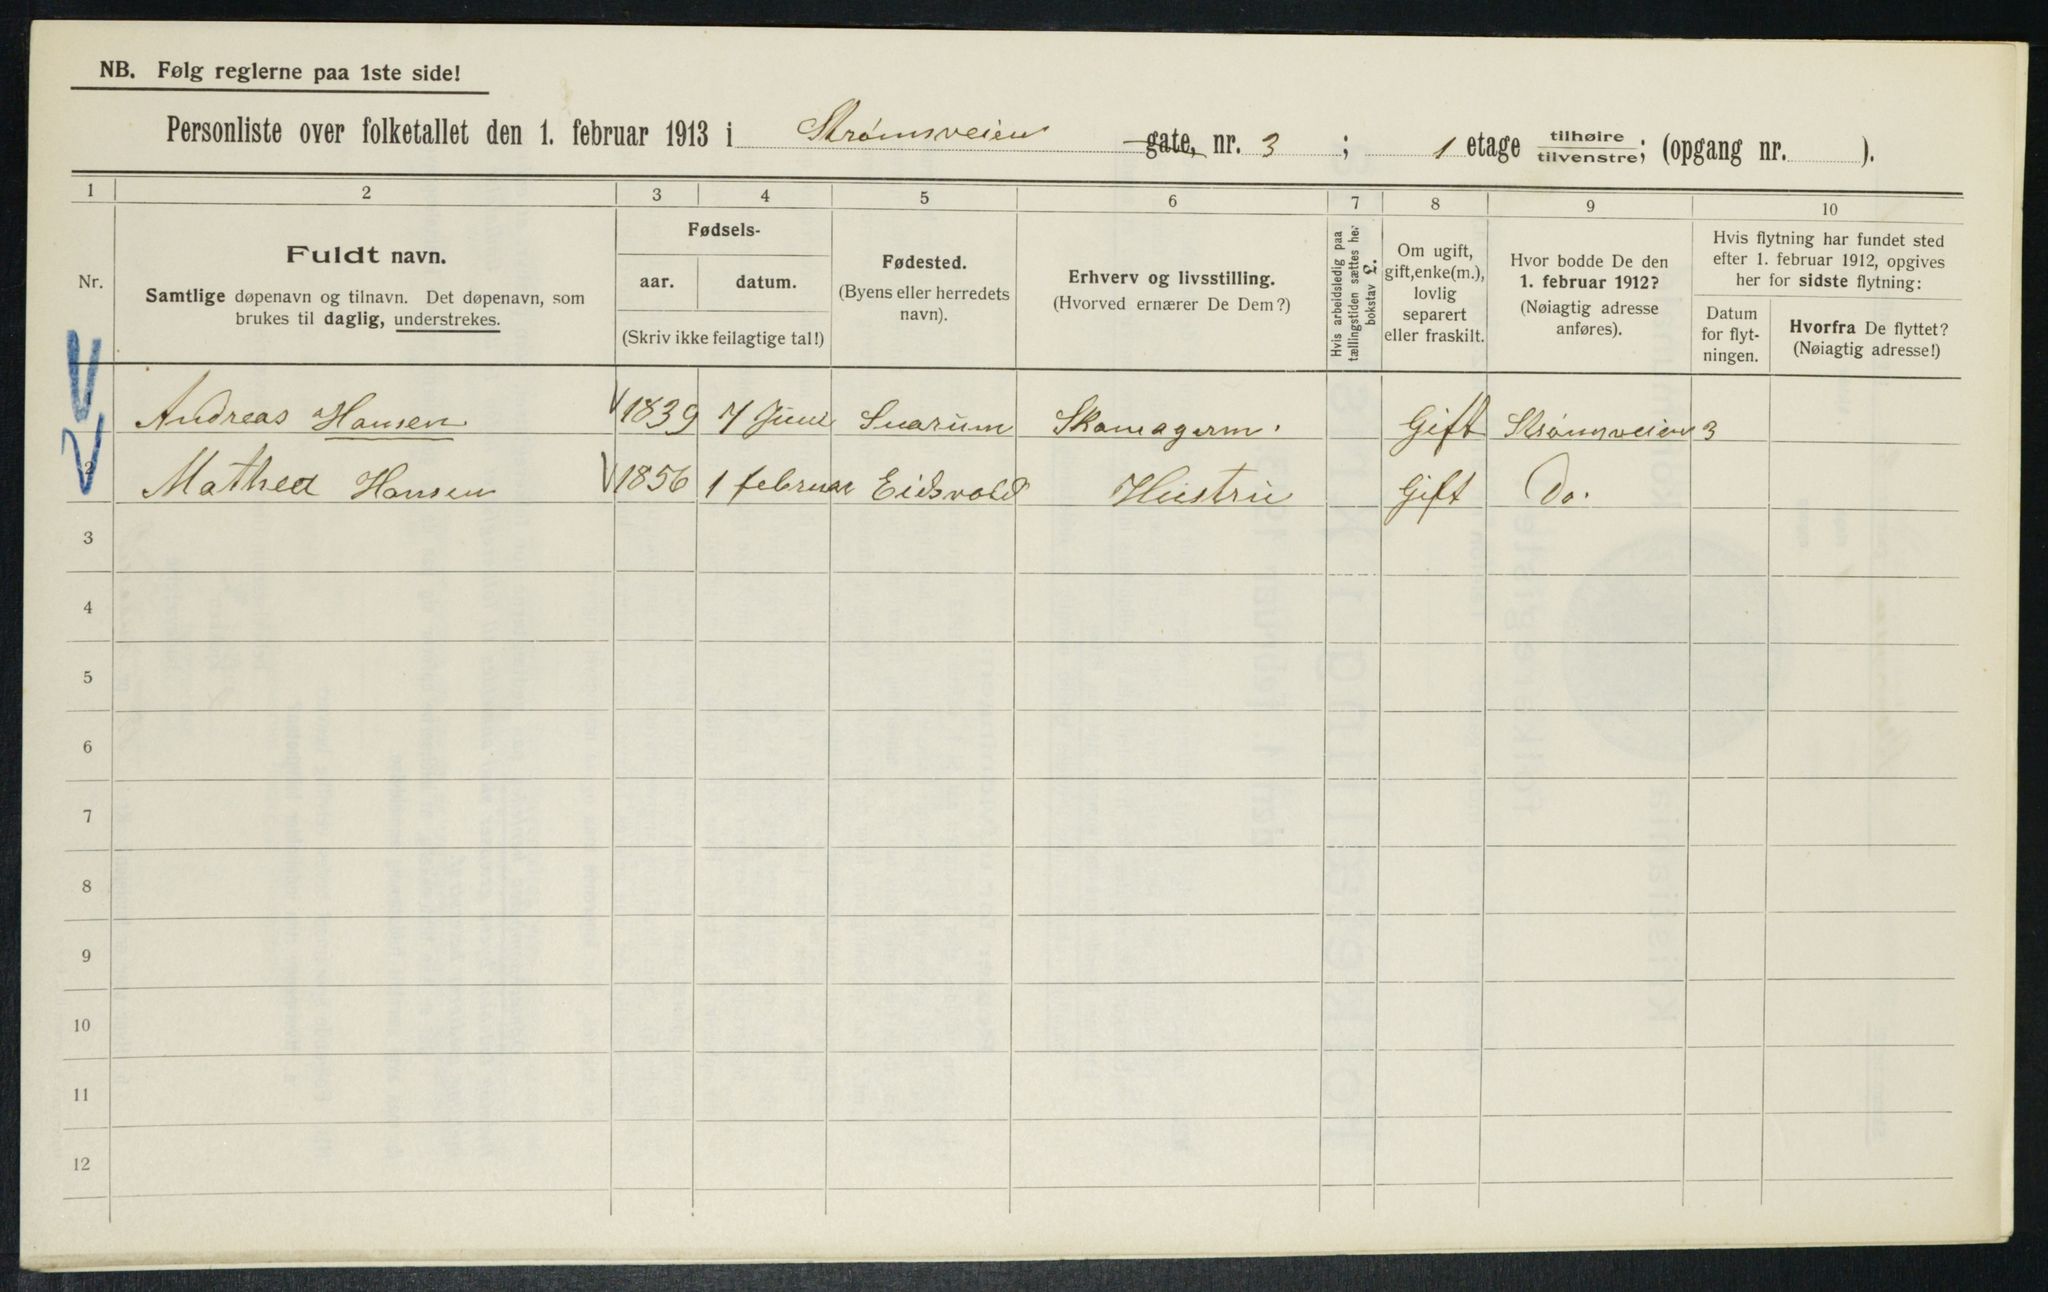 NB. Følg reglerne paa 1ste side!
Personliste over folketallet den 1. februar 1913 i Strømsveien gate, nr. 3 ; 1 etage tilhøire tilvenstre; (opgang nr. ).
1 2 3 4 5 6 7 8 9 10
Nr.
Fuldt navn.
Samtlige døpenavn og tilnavn. Det døpenavn, som
brukes til daglig, understrekes.
Fødsels-
aar. datum.
(Skriv ikke feilagtige tal!)
Fødested.
(Byens eller herredets
navn).
Erhverv og livsstilling.
(Hvorved ernærer De Dem?)
Hvis arbeidsledig paa
tællingstiden sættes her
bokstav L.
Om ugift,
gift, enke(m.),
lovlig
separert
eller fraskilt.
Hvor bodde De den
1. februar 1912?
(Nøiagtig adresse
anføres).
Hvis flytning har fundet sted
efter 1. februar 1912, opgives
her for sidste flytning:
Datum
for flyt-
ningen.
Hvorfra De flyttet?
(Nøiagtig adresse!)
Andreas Hansen 1839 7 Juni Snarum Skomagerm. Gift Strømsveien 3
2 Mathea Hansen 1856 1 februar Eidsvold Hustru Gift Do.
3
4
5
6
7
8
9
10
11
12